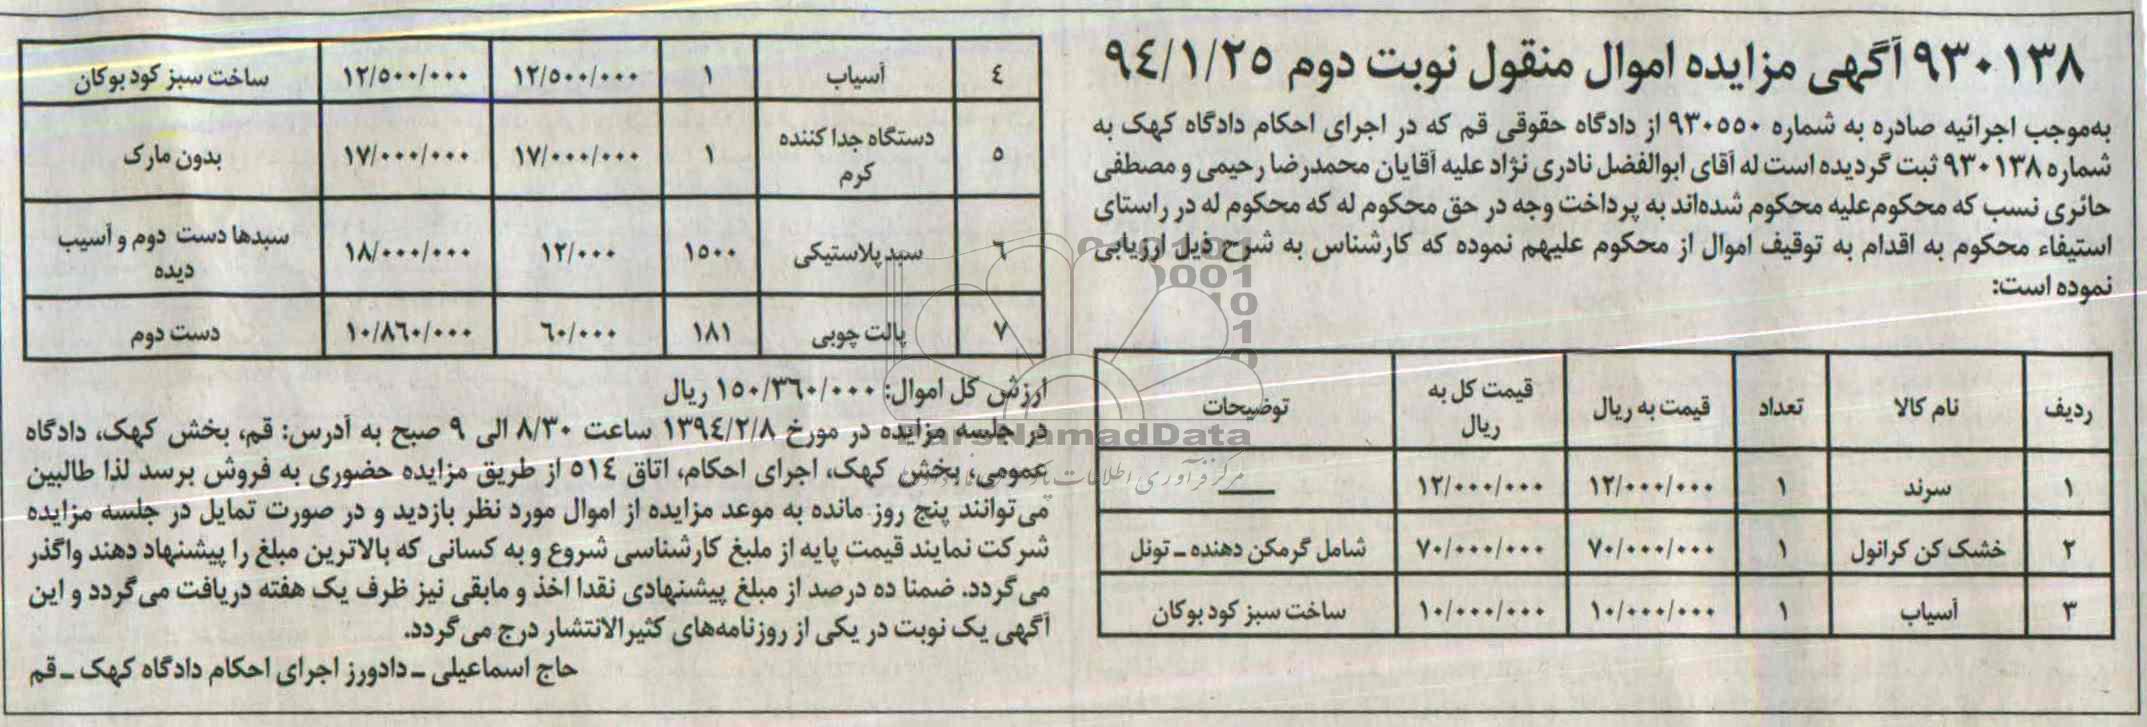 ۹۳۰۱۳۸ آگهی مزایده اموال منقول نوبت دوم ۹۴/۱/۲۵
به‌موجب اجرائیه صادره به شماره ۹۳۰۵۵۰ از دادگاه حقوقی قم که در اجرای احکام دادگاه کهک به
شماره ۹۳۰۱۳۸ ثبت گردیده است له آقای ابوالفضل نادری نژاد علیه آقایان محمدرضا رحیمی و مصطفی
حائری نسب که محکوم‌علیه محکوم شده‌اند به پرداخت وجه در حق محکوم له که محکوم له در راستای
استیفاء محکوم به اقدام به توقیف اموال از محکوم علیهم نموده که کارشناس به شرح ذیل ارزیابی
نموده است:
ردیف نام کالا تعداد قیمت به ریال قیمت کل به ریال توضیحات
۱ سرند ۱ ۱۲/۰۰۰/۰۰۰ ۱۲/۰۰۰/۰۰۰ ــــ
۲ خشک کن کرانول ۱ ۷۰/۰۰۰/۰۰۰ ۷۰/۰۰۰/۰۰۰ شامل گرمکن دهنده ـ تونل
۳ آسیاب ۱ ۱۰/۰۰۰/۰۰۰ ۱۰/۰۰۰/۰۰۰ ساخت سبز کود بوکان
۴ آسیاب ۱ ۱۲/۵۰۰/۰۰۰ ۱۲/۵۰۰/۰۰۰ ساخت سبز کود بوکان
۵ دستگاه جدا کننده کرم ۱ ۱۷/۰۰۰/۰۰۰ ۱۷/۰۰۰/۰۰۰ بدون مارک
۶ سبد پلاستیکی ۱۵۰۰ ۱۲/۰۰۰ ۱۸/۰۰۰/۰۰۰ سبدها دست دوم و آسیب دیده
۷ پالت چوبی ۱۸۱ ۶۰/۰۰۰ ۱۰/۸۶۰/۰۰۰ دست دوم
ارزش کل اموال: ۱۵۰/۳۶۰/۰۰۰ ریال
در جلسه مزایده در مورخ ۱۳۹۴/۲/۸ ساعت ۸/۳۰ الی ۹ صبح به آدرس: قم، بخش کهک، دادگاه
عمومی، بخش کهک، اجرای احکام، اتاق ۵۱۴ از طریق مزایده حضوری به فروش برسد لذا طالبین
می‌توانند پنج روز مانده به موعد مزایده از اموال مورد نظر بازدید و در صورت تمایل در جلسه مزایده
شرکت نمایند قیمت پایه از ملبغ کارشناسی شروع و به کسانی که بالاترین مبلغ را پیشنهاد دهند واگذر
می‌گردد. ضمنا ده درصد از مبلغ پیشنهادی نقدا اخذ و مابقی نیز ظرف یک هفته دریافت می‌گردد و این
آگهی یک نوبت در یکی از روزنامه‌های کثیرالانتشار درج می‌گردد.
حاج اسماعیلی ـ دادورز اجرای احکام دادگاه کهک ـ قم
ParsNamadData